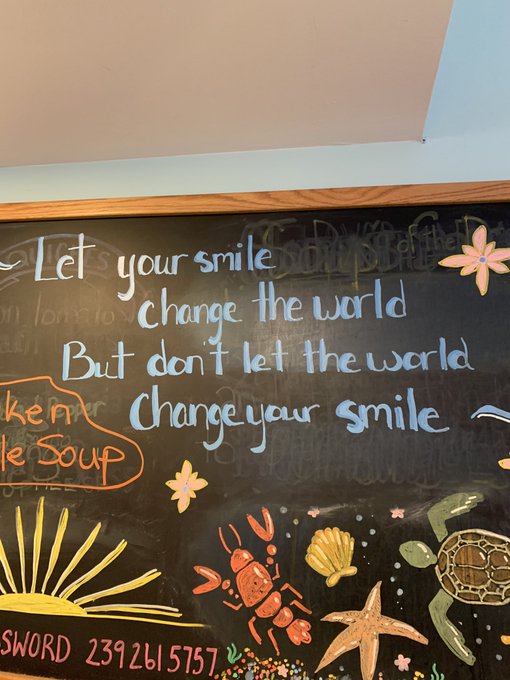 Let your smile
change the world
But don't let the world
Change your smile
ken
le Soup
SWORD 2392615757